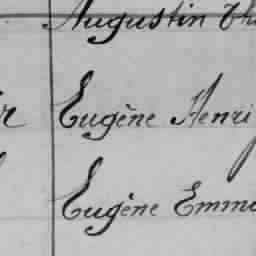 Augustin
Eugène Henri
Eugène